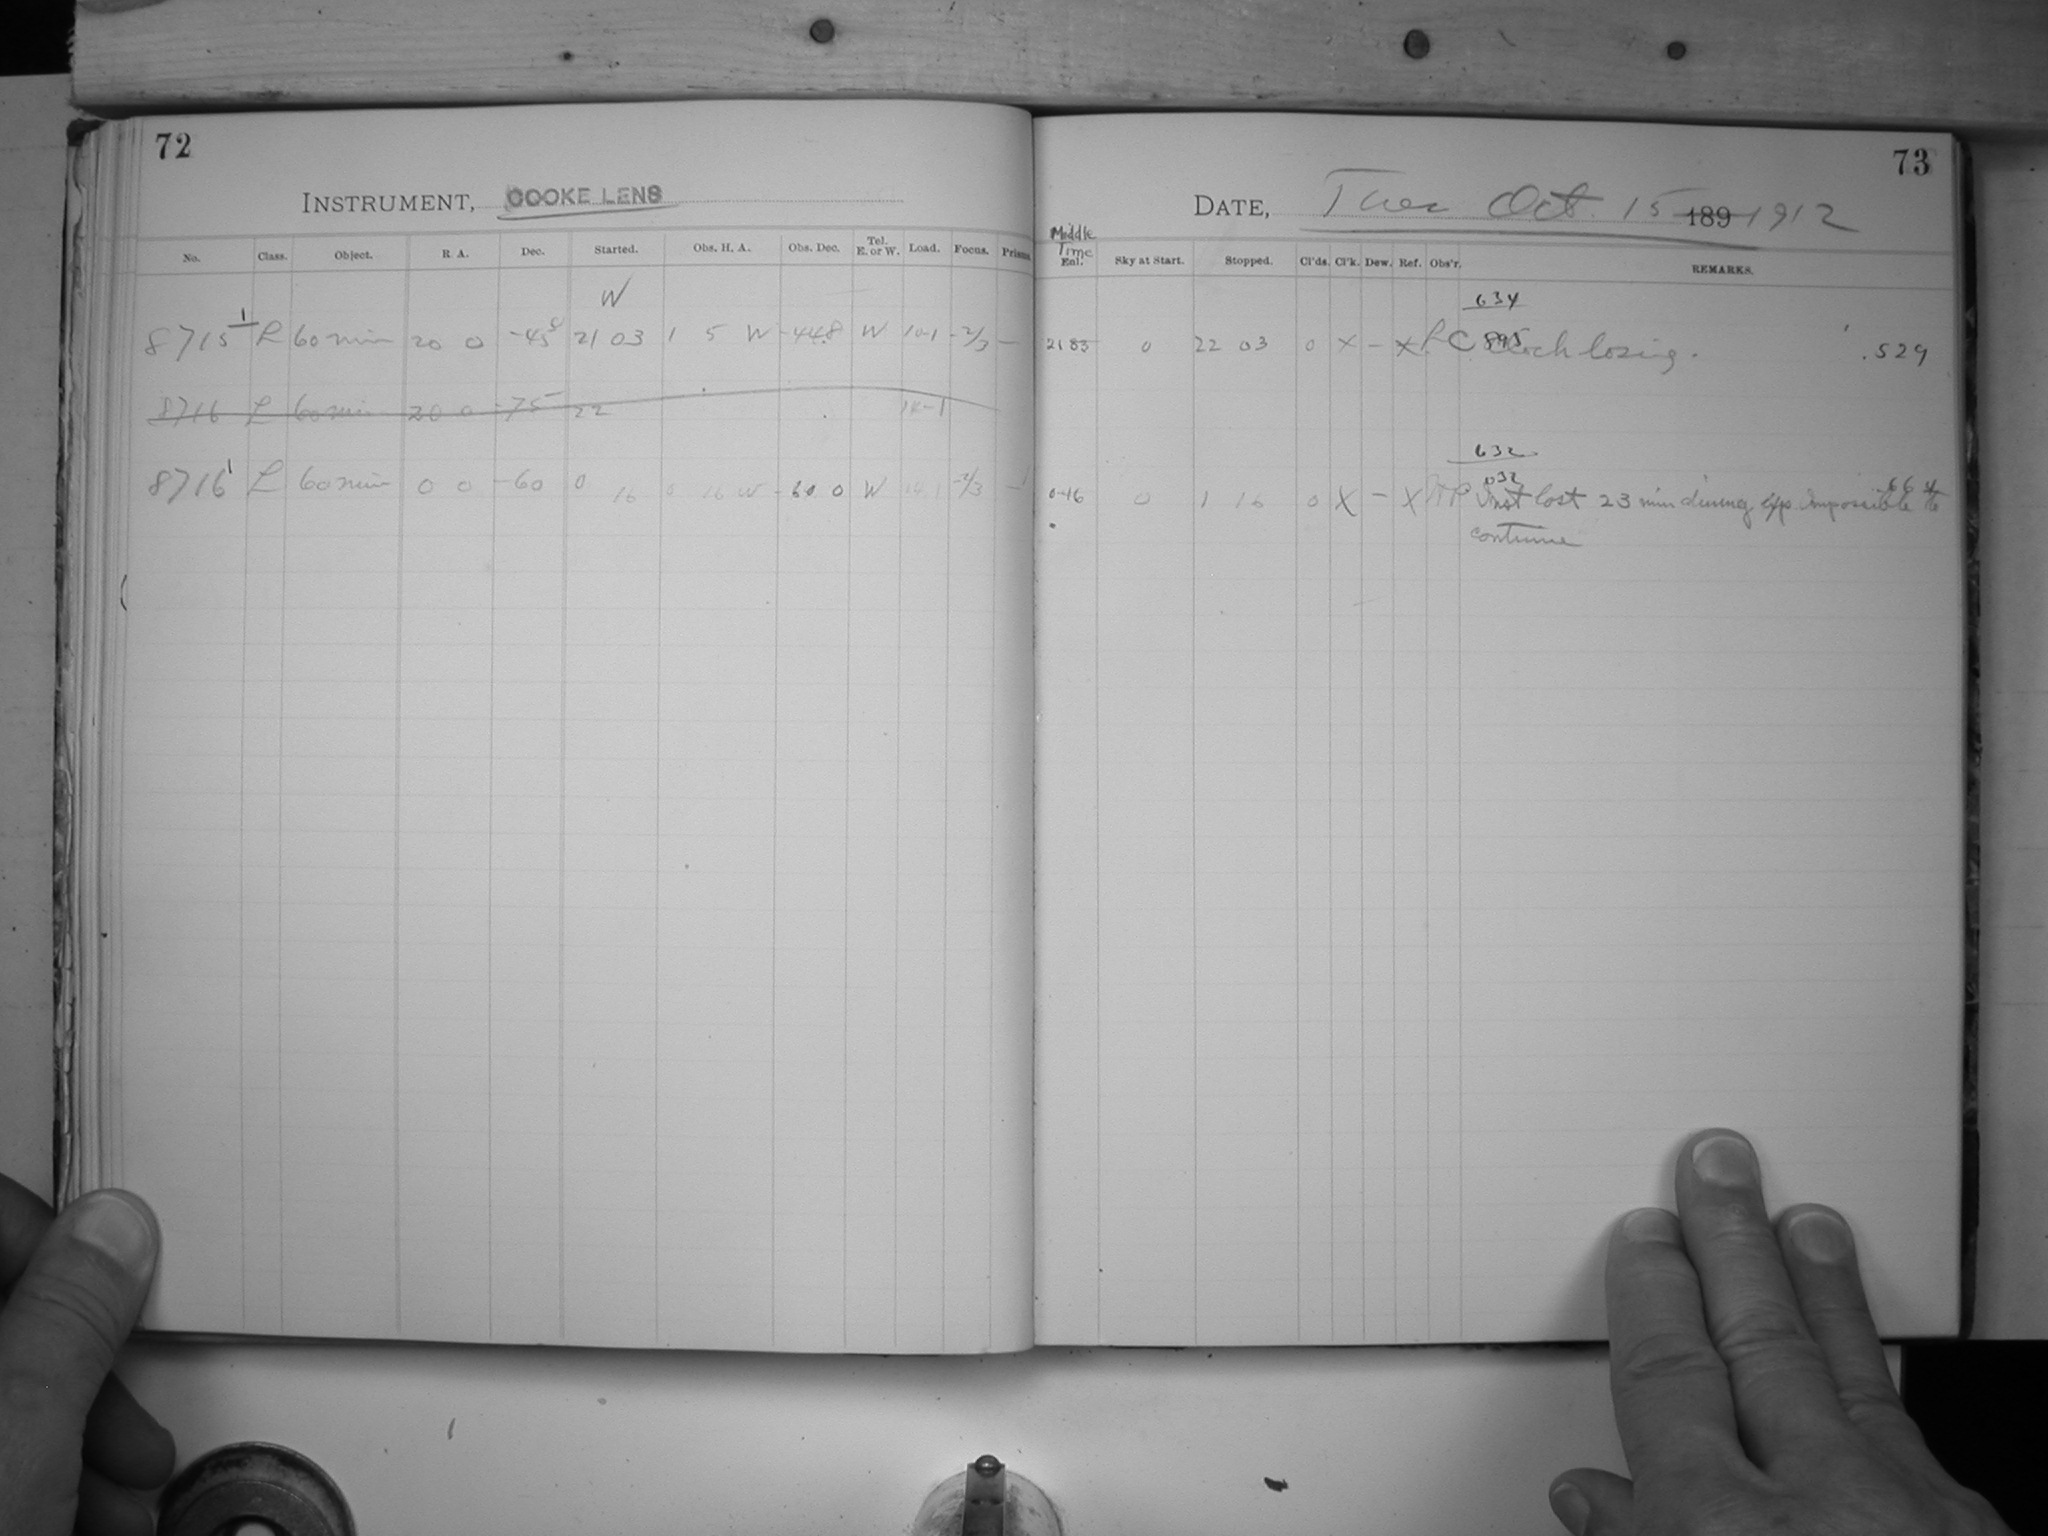 72
INSTRUMENT, COOKE LENS
No. Class. Object. R A. Dec. Started. Obs. H. A. Obs. Dec. Tel. E. or W. Load. Focus. Prisms.
W
8715 1 L 60 min 20 0 -45 21 03 1 5 W -44.8 W 10-1 -2/3 —
8716 L 60 min 20 0 -75 22 14-1
8716 1 L 60 min 0 0 -60 0 16 0 16 W -60 0 W 14 1 -2/3 -
73
DATE, Tues Oct. 15 189 1912
Middle Time
Eal. Sky at Start. Stopped. Cl'ds. Cl'k. Dew. Ref. Obs'r. REMARKS.
634
2183 0 22 03 0 X - X L C 895 Clock losing. .529
632
0-16 0 1 16 0 X - X 032 Inst lost 23 min during exp. Impossible to
continue